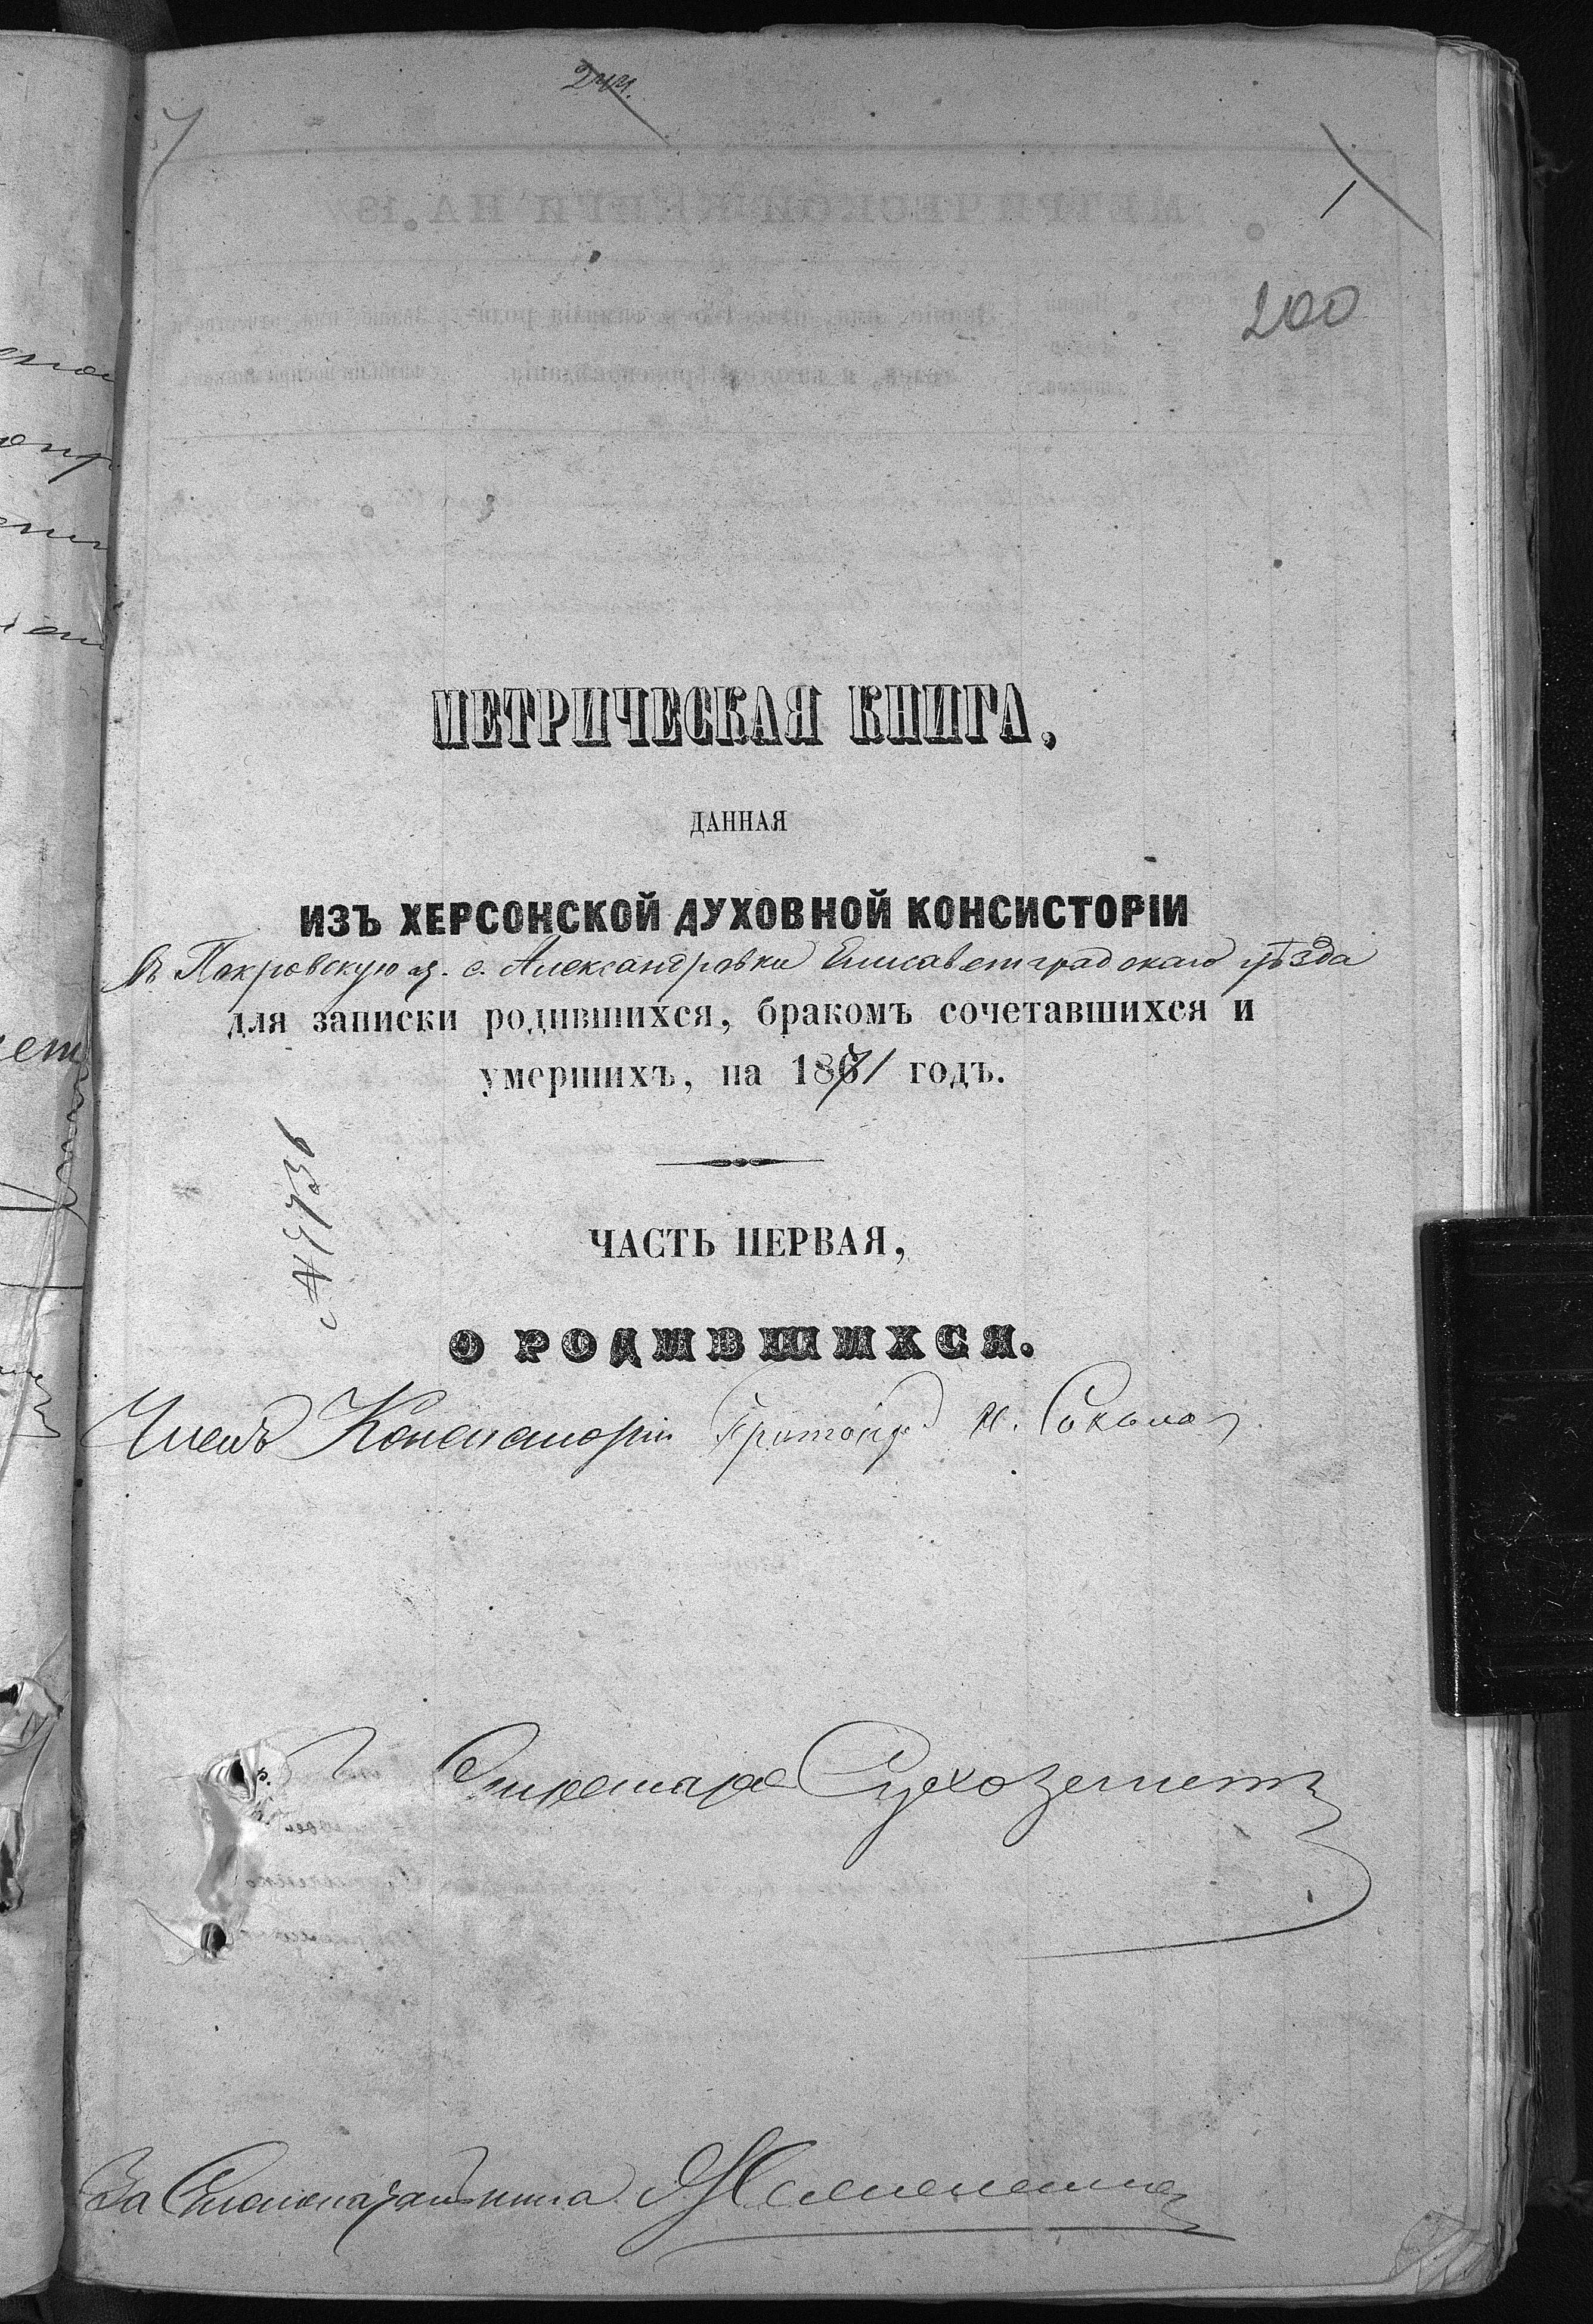 244.
1
200
МЕТРИЧЕСКАЯ КНИГА,
ДАННАЯ
ИЗЪ ХЕРСОНСКОЙ ДУХОВНОЙ КОНСИСТОРІИ
Въ Покровскую ц. с. Александровки Елисаветградскаго уѣзда
для записки родившихся, бракомъ сочетавшихся и
умершихъ, на 1871 годъ.
№ 9736
ЧАСТЬ ПЕРВАЯ,
О РОДИВШИХСЯ.
Членъ Консисторіи
Секретарь Сухоземетъ
За Столоначальника